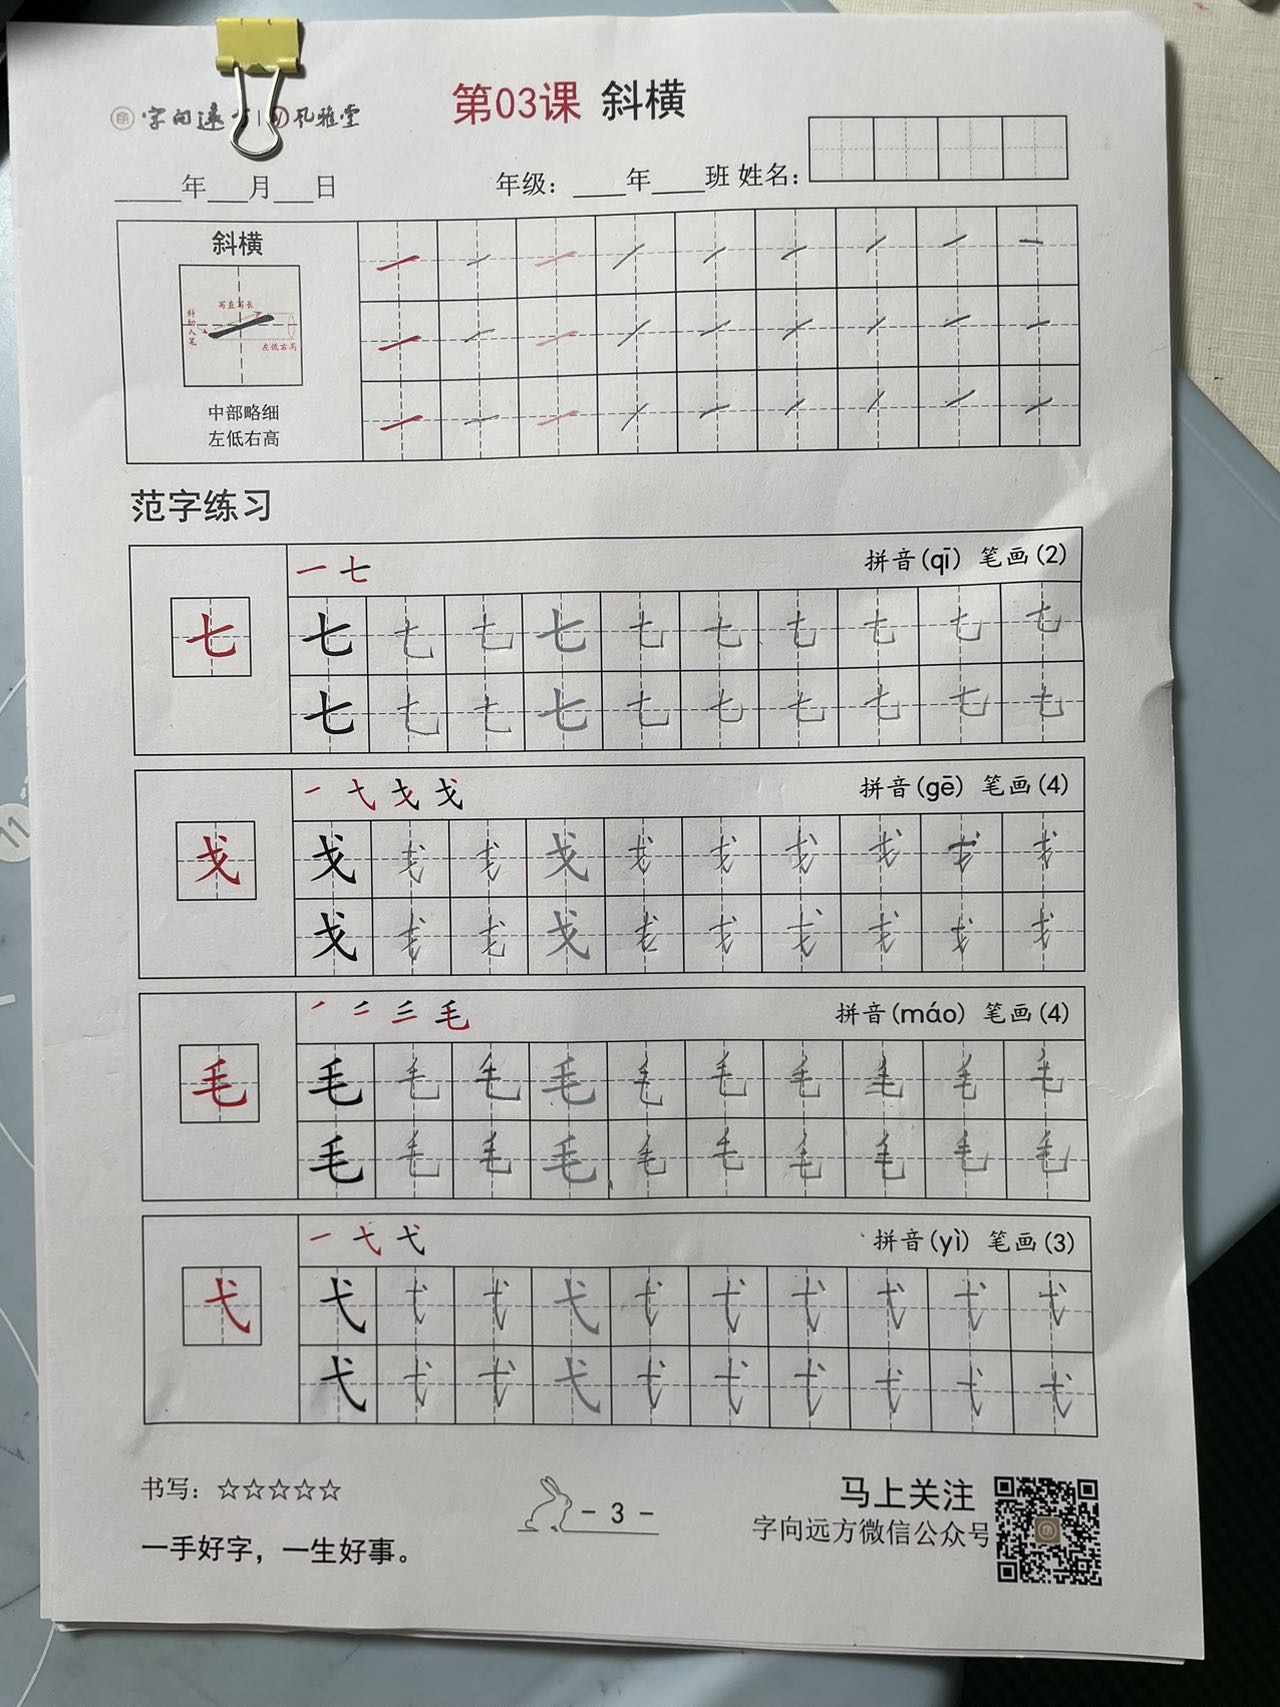 第03课 斜横
字向远方 | 风雅堂
____年___月___日 年级：____年____班 姓名：
斜横
写直写长
斜切入笔
左低右高
中部略细
左低右高
范字练习
一 七 拼音(qī) 笔画(2)
七 七 七 七 七 七 七 七 七 七 七
七 七 七 七 七 七 七 七 七 七
一 弋 戈 戈 拼音(gē) 笔画(4)
戈 戈 戈 戈 戈 戈 戈 戈 戈 戈 戈
戈 戈 戈 戈 戈 戈 戈 戈 戈 戈
毛 拼音(máo) 笔画(4)
毛 毛 毛 毛 毛 毛 毛 毛 毛 毛 毛
毛 毛 毛 毛 毛 毛 毛 毛 毛 毛
一 弋 弋 拼音(yì) 笔画(3)
弋 弋 弋 弋 弋 弋 弋 弋 弋 弋 弋
弋 弋 弋 弋 弋 弋 弋 弋 弋 弋
书写：☆☆☆☆☆
一手好字，一生好事。
- 3 -
马上关注
字向远方微信公众号
11